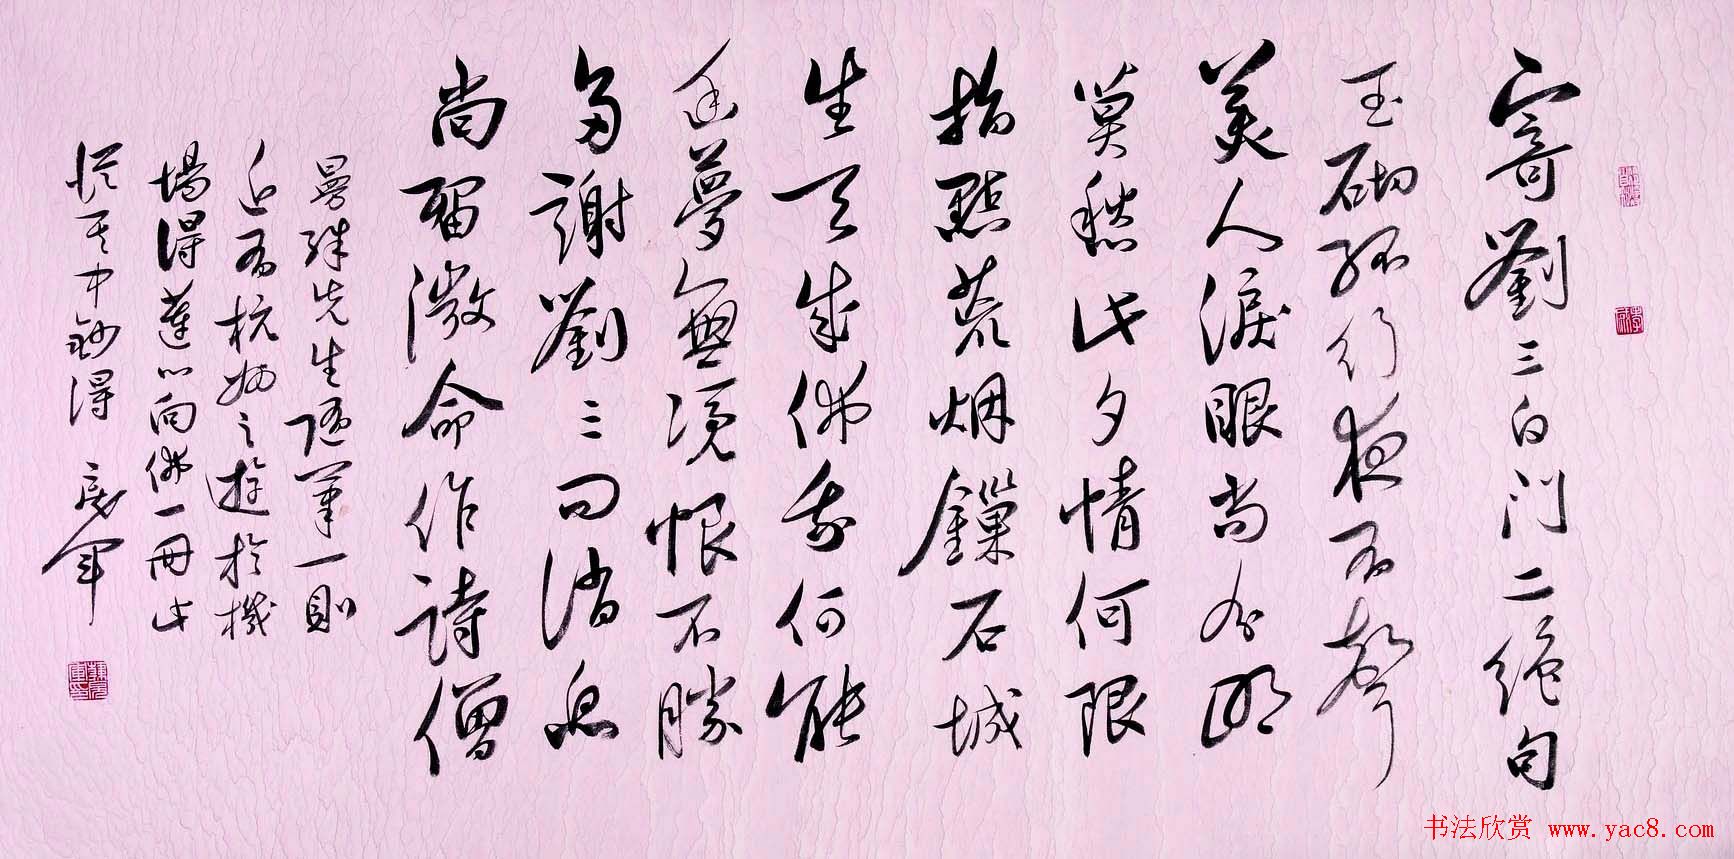 寄劉三白門二絕句
玉砌孤行夜有聲
美人淚眼尚分明
莫愁此夕情何限
指點荒烟鎖石城
生天成佛我何能
幽夢無憑恨不勝
多謝劉三問消息
尚留微命作詩僧
曼殊先生隨筆一則
近有杭州之遊於機
場得蓮心向佛一冊此
從其中鈔得
书法欣赏 www.yac8.com